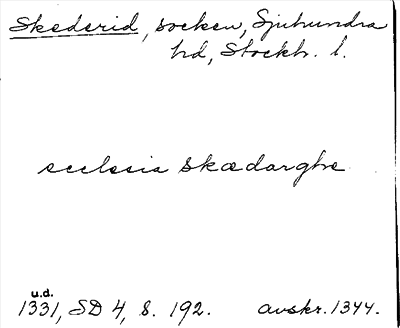 Skederid, socken, Sjuhundra
hd, Stockh. l.
ecclesia Skædarghe
u.d.
1331, SD 4, s. 192. avskr. 1344.